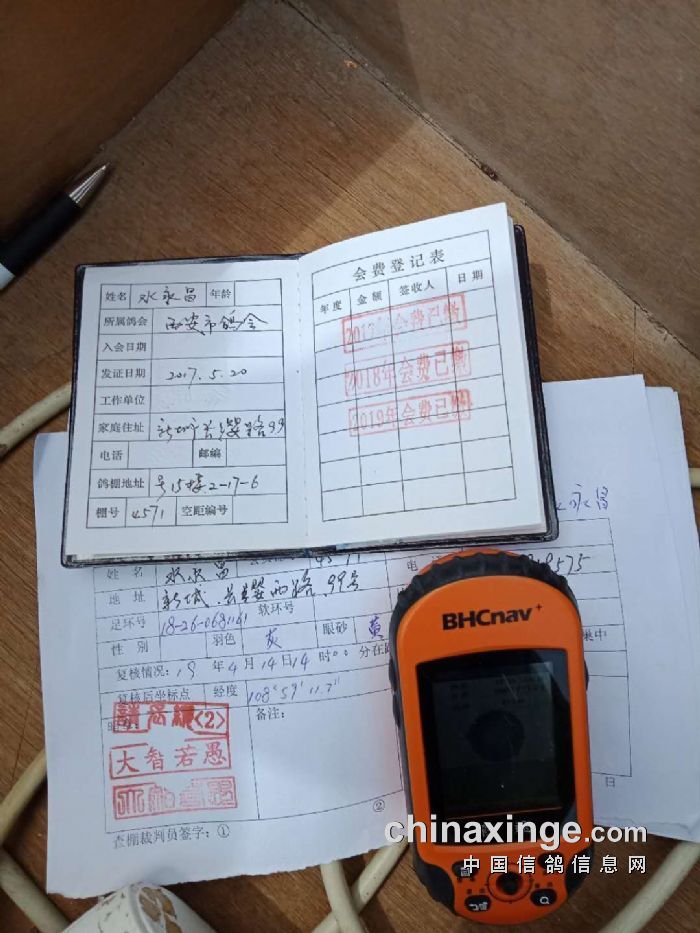 姓名 水永昌 年龄
所属鸽会 西安市鸽会
入会日期
发证日期 2017.5.20
工作单位
家庭住址 新城区长缨路99
电话 邮编
鸽棚地址 号15楼2-17-6
棚号 4571 空距编号
会费登记表
年度 金额 签收人 日期
2017年会费已缴
2018年会费已缴
2019年会费已缴
水永昌
姓名 水永昌
地址 新城.长缨西路99号
足环号 18-26-068
软环号
性别 羽色 灰 眼砂 黄
复核情况:19年4月14日14时00分在
复核后坐标点 经度 108°59′11.7″
备注:
<2>
大智若愚
查棚裁判员签字:①
②
日
BHCnav+
chinaxinge.com
中国信鸽信息网